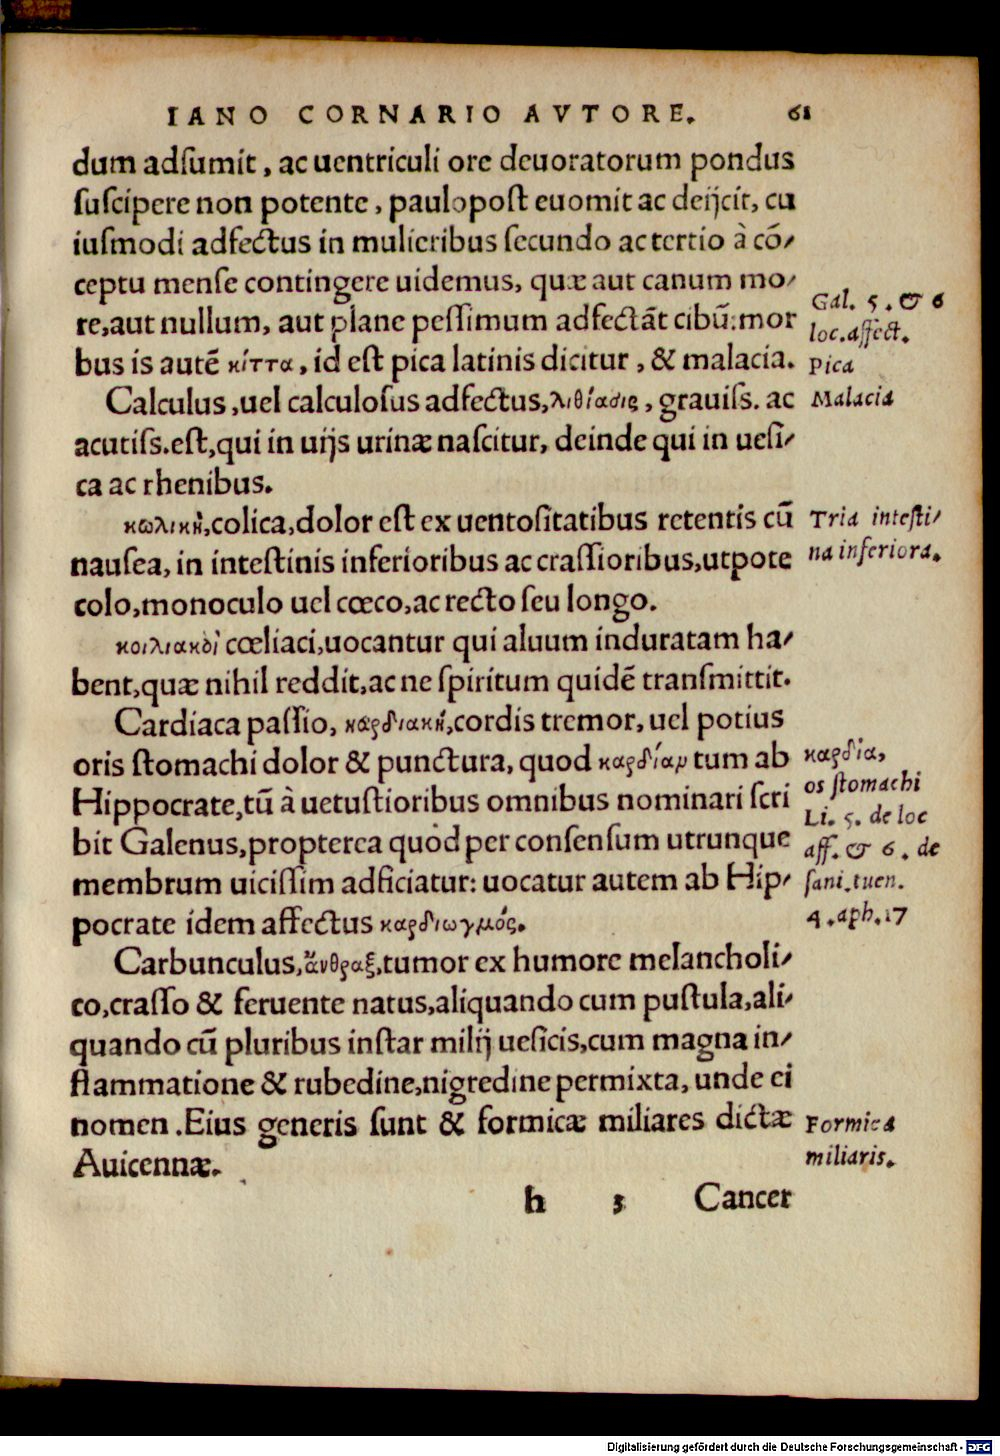 IANO CORNARIO AVTORE. 61
dum adsumit, ac uentriculi ore deuoratorum pondus
suscipere non potente, paulopost euomit ac deijcit, cu
iusmodi adfectus in mulieribus secundo ac tertio à cō/
ceptu mense contingere uidemus, quæ aut canum mo/
re, aut nullum, aut plane pessimum adfectāt cibū: mor
bus is autē κίττα, id est pica latinis dicitur, & malacia.
Calculus, uel calculosus adfectus, λιθίασις, grauiss. ac
acutiss. est, qui in uijs urinæ nascitur, deinde qui in uesi/
ca ac rhenibus.
κωλικὴ, colica, dolor est ex uentositatibus retentis cū
nausea, in intestinis inferioribus ac crassioribus, utpote
colo, monoculo uel cœco, ac recto seu longo.
κοιλιακοὶ cœliaci, uocantur qui aluum induratam ha/
bent, quæ nihil reddit, ac ne spiritum quidē transmittit.
Cardiaca passio, καρδιακὴ, cordis tremor, uel potius
oris stomachi dolor & punctura, quod καρδίαν tum ab
Hippocrate, tū à uetustioribus omnibus nominari scri
bit Galenus, propterea quòd per consensum utrunque
membrum uicissim adficiatur: uocatur autem ab Hip/
pocrate idem affectus καρδιωγμός.
Carbunculus, ἄνθραξ, tumor ex humore melancholi/
co, crasso & feruente natus, aliquando cum pustula, ali/
quando cū pluribus instar milij uesicis, cum magna in/
flammatione & rubedine, nigredine permixta, unde ei
nomen. Eius generis sunt & formicæ miliares dictæ
Auicennæ.
h 3 Cancer
Gal. 5. & 6
loc. affect.
Pica
Malacia
Tria intesti/
na inferiora.
καρδία,
os stomachi
Li. 5. de loc
aff. & 6. de
sani. tuen.
4. aph. 17
Formica
miliaris.
Digitalisierung gefördert durch die Deutsche Forschungsgemeinschaft - DFG